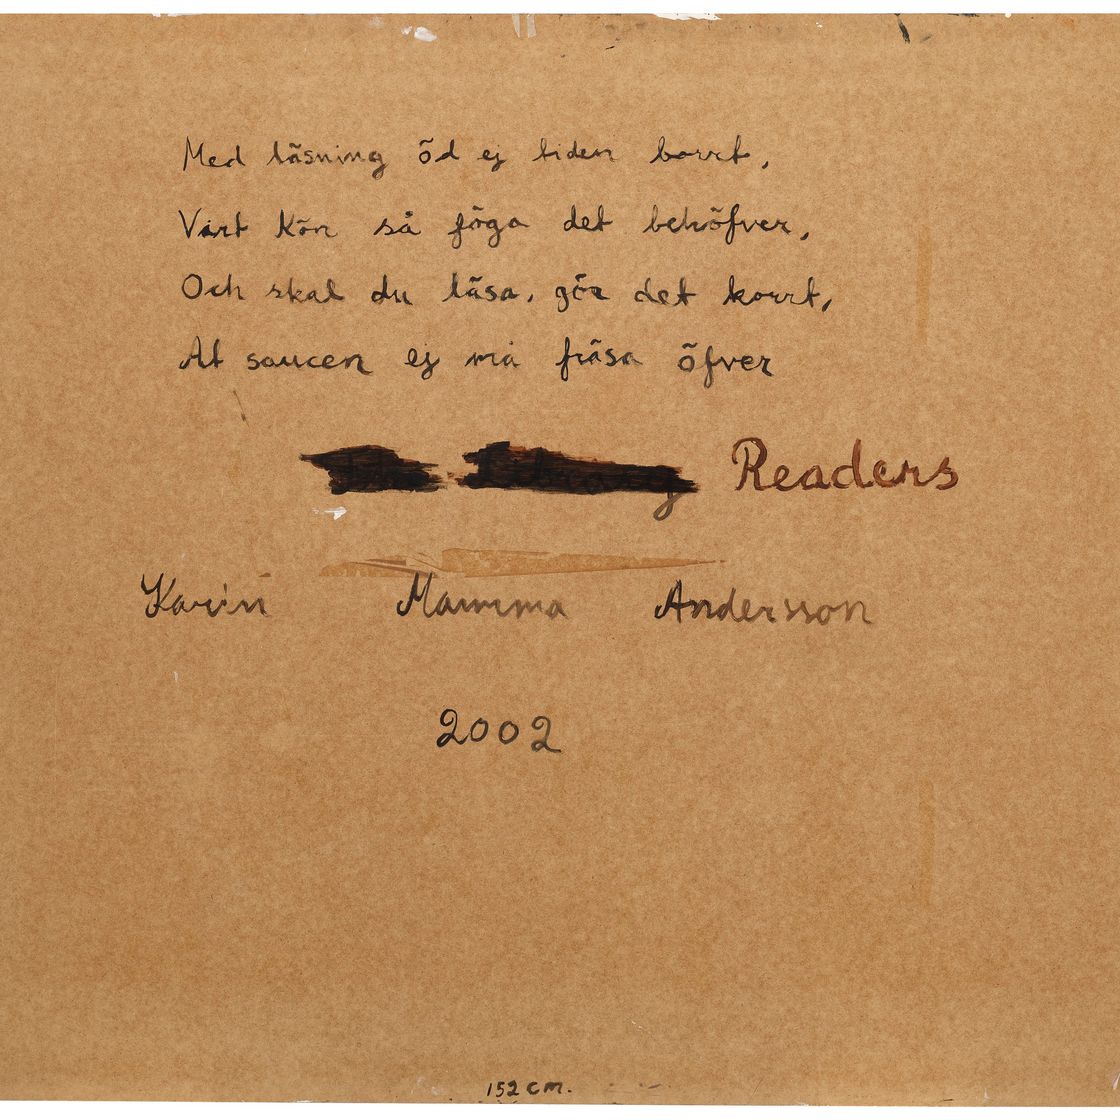 Med läsning öd ej tiden borrt,
Vårt Kön så föga det behöfver,
Och skal du läsa, gör det korrt,
At saucen ej må fräsa öfver
Readers
Karin Mamma Andersson
2002
152 cm.